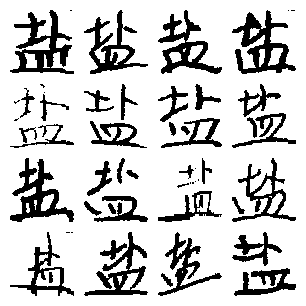 盐盐盐盐
盐盐盐盐
盐盐盐盐
盐盐盐盐